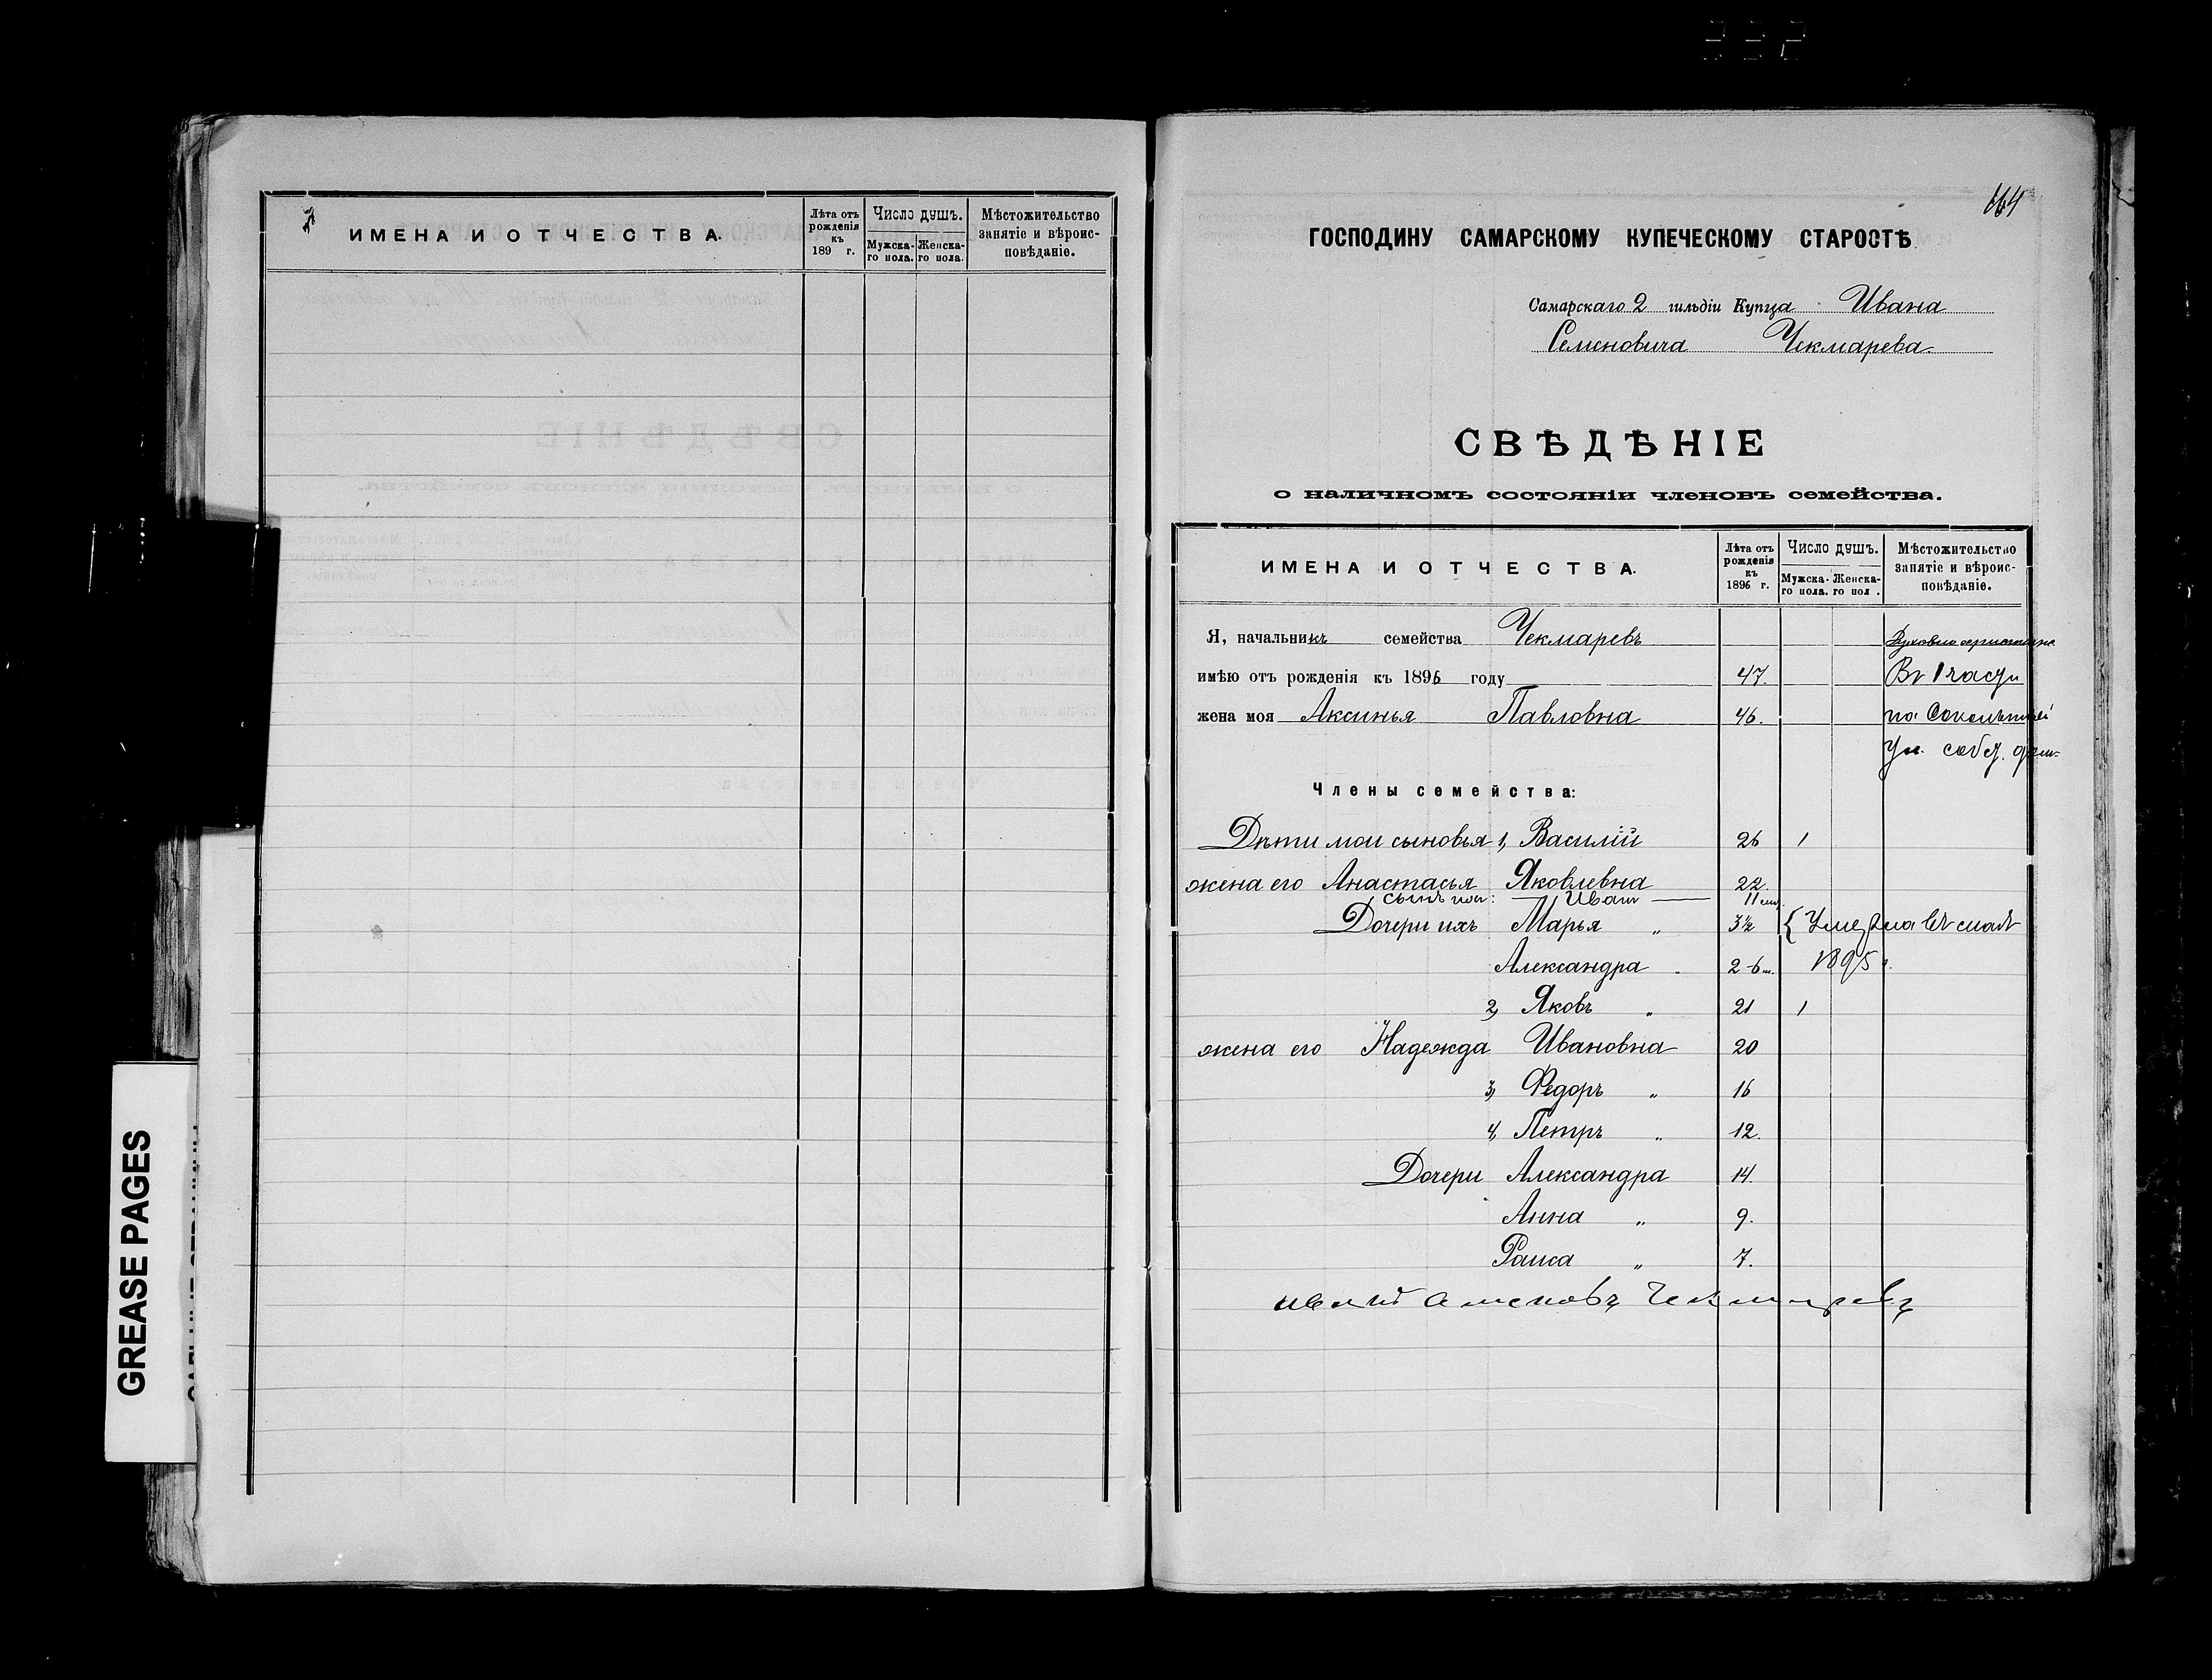 ИМЕНА И ОТЧЕСТВА.
Лѣта отъ рожденія къ 189 г.
Число душъ.
Мужска-го пола.
Женска-го пола.
Мѣстожительство занятіе и вѣроис-повѣданіе.
GREASE PAGES
164
ГОСПОДИНУ САМАРСКОМУ КУПЕЧЕСКОМУ СТАРОСТѢ
Самарскаго 2 гильдіи Купца Ивана
Семеновича Чекмарева.
СВѢДѢНІЕ
о наличномъ состояніи членовъ семейства.
ИМЕНА И ОТЧЕСТВА.
Лѣта отъ рожденія къ 1896 г.
Число душъ.
Мужска-го пола.
Женска-го пол .
Мѣстожительство занятіе и вѣроис-повѣданіе.
Я, начальникъ семейства Чекмаревъ
имѣю отъ рожденія къ 1896 году 47. Въ 1 части
жена моя Аксинья Павловна 46. по
Ул. собст.
Члены семейства:
Дѣти мои сыновья 1, Василій 26 1
жена его Анастасья Яковлевна 22.
сынъ Иванъ 11 м.
Дочери ихъ Марья „ 3½ { Умерла въ маѣ
Александра „ 2-6 м. 1895 г.
2, Яковъ „ 21 1
жена его Надежда Ивановна 20
3, Федоръ „ 16
4, Петръ „ 12.
Дочери Александра 14.
Анна „ 9.
Раиса „ 7.
Иванъ Семеновъ Чекмаревъ